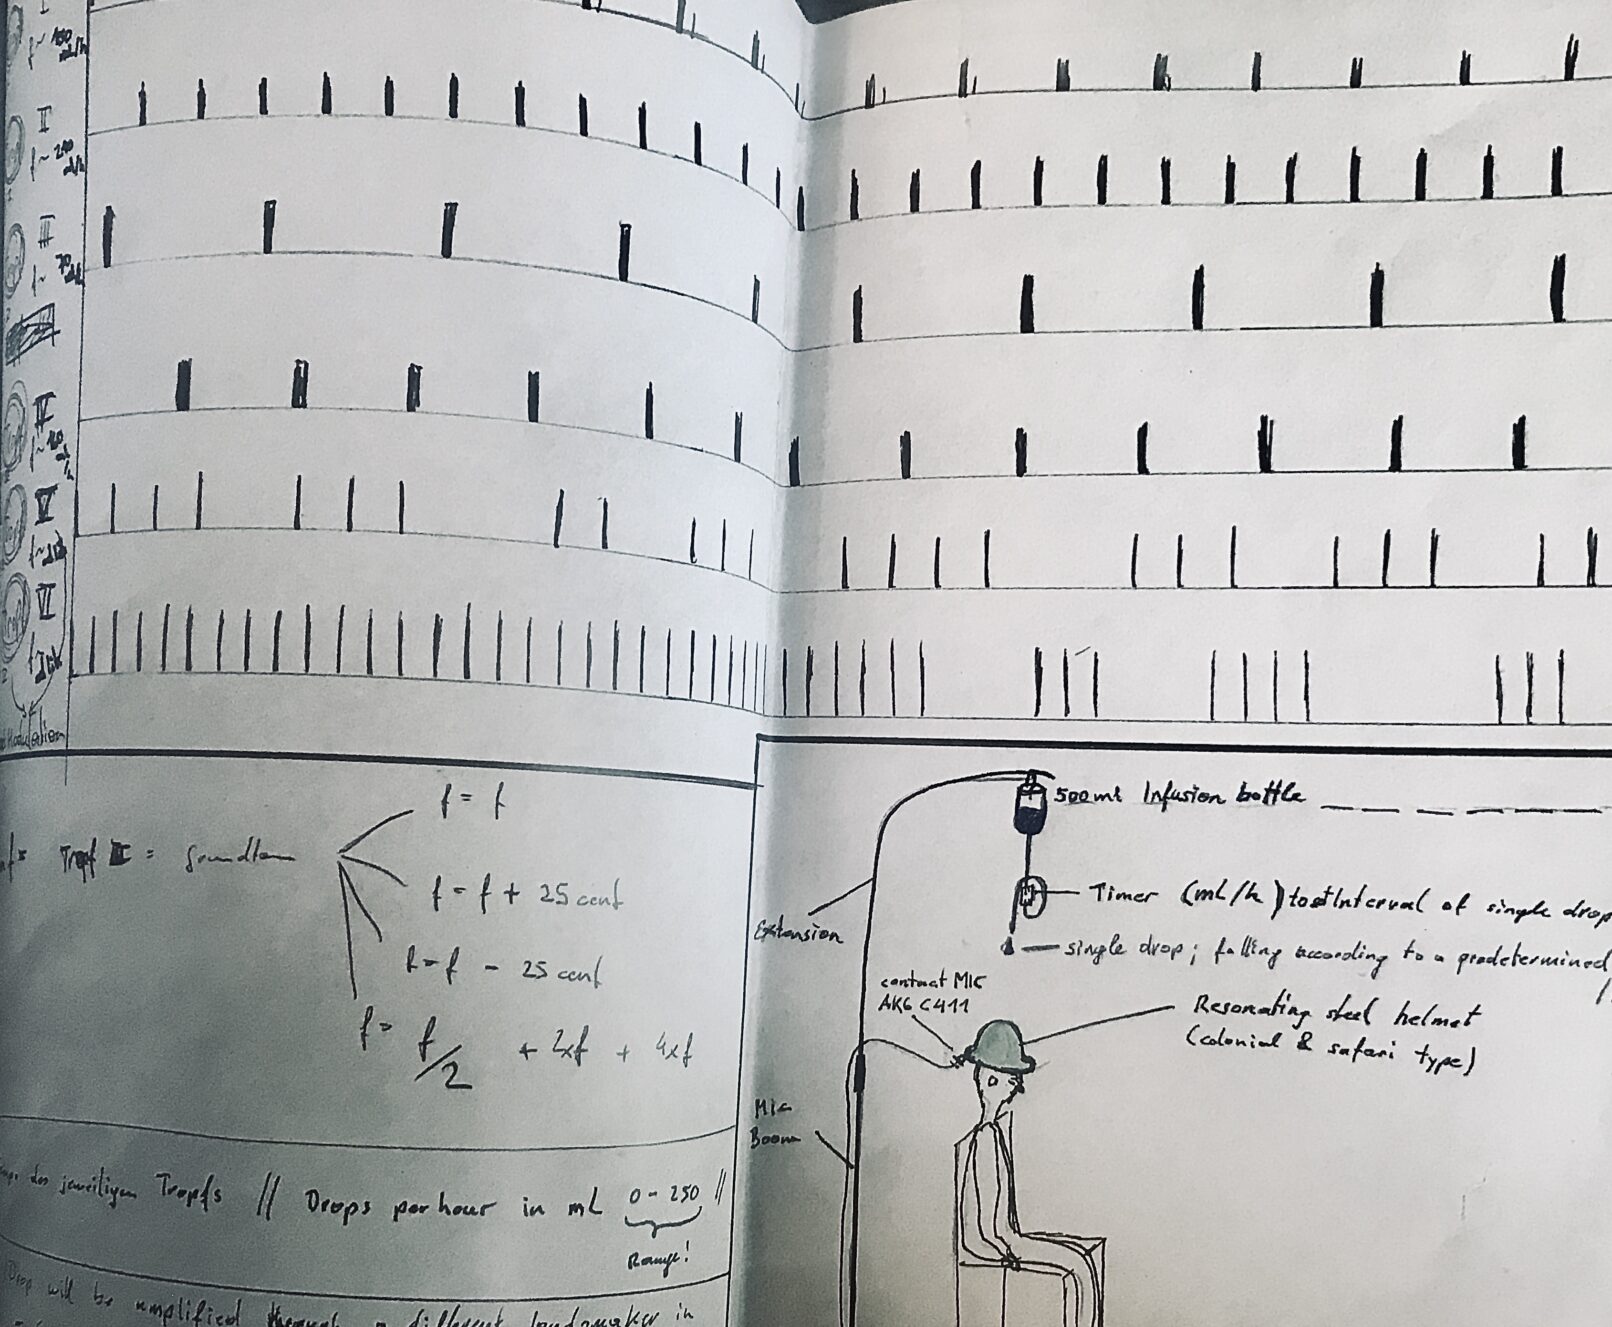 I
f ~
II
f ~ 240
ml/h
III
f ~ 70
IV
f ~ 160
V
f ~
VI
f = f
Tropf = Grundton
f = f + 25 cent
f = f - 25 cent
f = f/2 + 2xf + 4xf
des jeweiligen Tropfs // Drops per hour in mL 0 - 250 //
Range!
Drop will be amplified through a different loudspeaker in
500 ml Infusion bottle
Timer (mL/h) Interval of single drop
single drop; falling according to a predetermined
Extension
contact MIC
AKG C411
Resonating steel helmet
(colonial & safari type)
Mic
Boom